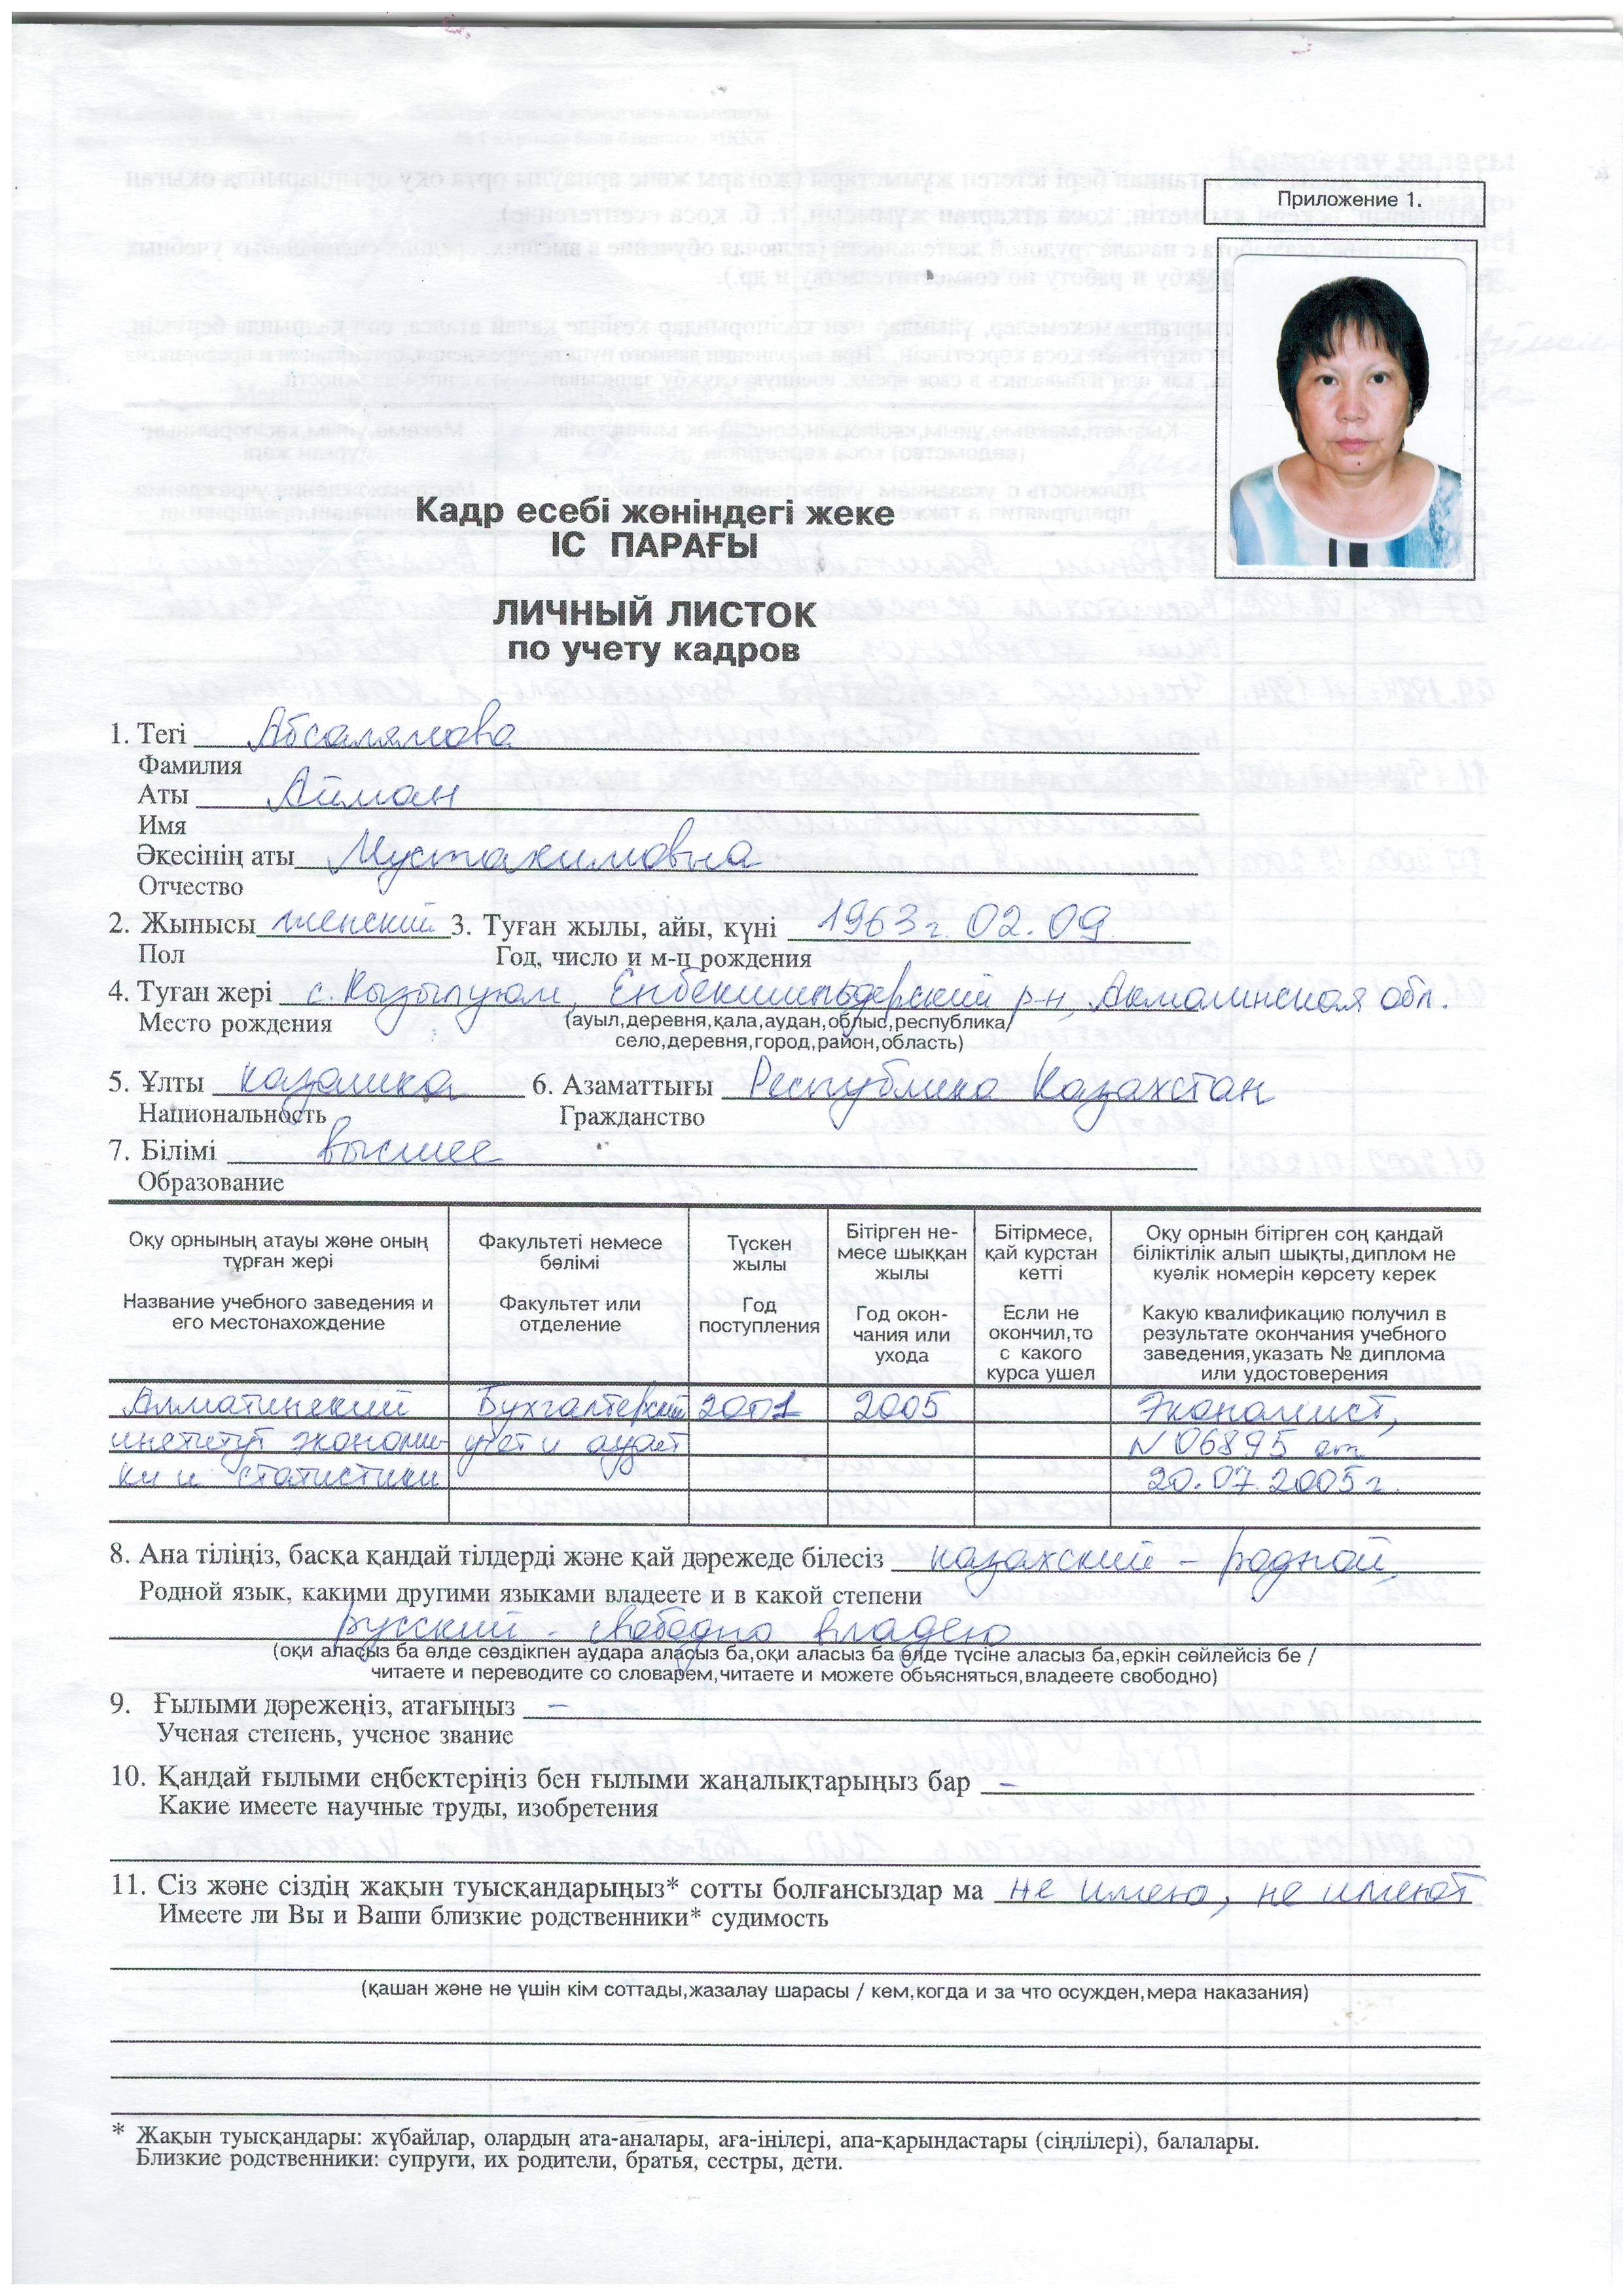 Приложение 1.
Кадр есебі жөніндегі жеке
ІС ПАРАҒЫ
ЛИЧНЫЙ ЛИСТОК
по учету кадров
1. Тегі Абсалямова
Фамилия
Аты Айман
Имя
Әкесінің аты Мустакимовна
Отчество
2. Жынысы женский 3. Туған жылы, айы, күні 1963 г. 02.09.
Пол Год, число и м-ц рождения
4. Туған жері с. Кызылуюм, Енбекшильдерский р-н, Акмолинская обл.
Место рождения (ауыл,деревня,қала,аудан,облыс,республика/
село,деревня,город,район,область)
5. Ұлты казашка 6. Азаматтығы Республика Казахстан
Национальность Гражданство
7. Білімі высшее
Образование
Оқу орнының атауы және оның тұрған жері
Название учебного заведения и его местонахождение
Факультеті немесе бөлімі
Факультет или отделение
Түскен жылы
Год поступления
Бітірген не-месе шыққан жылы
Год окон-чания или ухода
Бітірмесе, қай курстан кетті
Если не окончил,то с какого курса ушел
Оқу орнын бітірген соң қандай біліктілік алып шықты,диплом не куәлік номерін көрсету керек
Какую квалификацию получил в результате окончания учебного заведения,указать № диплома или удостоверения
Алматинский Бухгалтерский 2001 2005 Экономист,
институт экономи- учет и аудит N 06895 от
ки и статистики 20.07.2005 г.
8. Ана тіліңіз, басқа қандай тілдерді және қай дәрежеде білесіз казахский - родной,
Родной язык, какими другими языками владеете и в какой степени
русский - свободно владею
(оқи аласыз ба әлде сөздікпен аудара аласыз ба,оқи аласыз ба әлде түсіне аласыз ба,еркін сөйлейсіз бе /
читаете и переводите со словарем,читаете и можете объясняться,владеете свободно)
9. Ғылыми дәрежеңіз, атағыңыз -
Ученая степень, ученое звание
10. Қандай ғылыми еңбектеріңіз бен ғылыми жаңалықтарыңыз бар -
Какие имеете научные труды, изобретения
11. Сіз және сіздің жақын туысқандарыңыз* сотты болғансыздар ма не имею, не имеют
Имеете ли Вы и Ваши близкие родственники* судимость
(қашан және не үшін кім соттады,жазалау шарасы / кем,когда и за что осужден,мера наказания)
* Жақын туысқандары: жұбайлар, олардың ата-аналары, аға-інілері, апа-қарындастары (сіңлілері), балалары.
Близкие родственники: супруги, их родители, братья, сестры, дети.